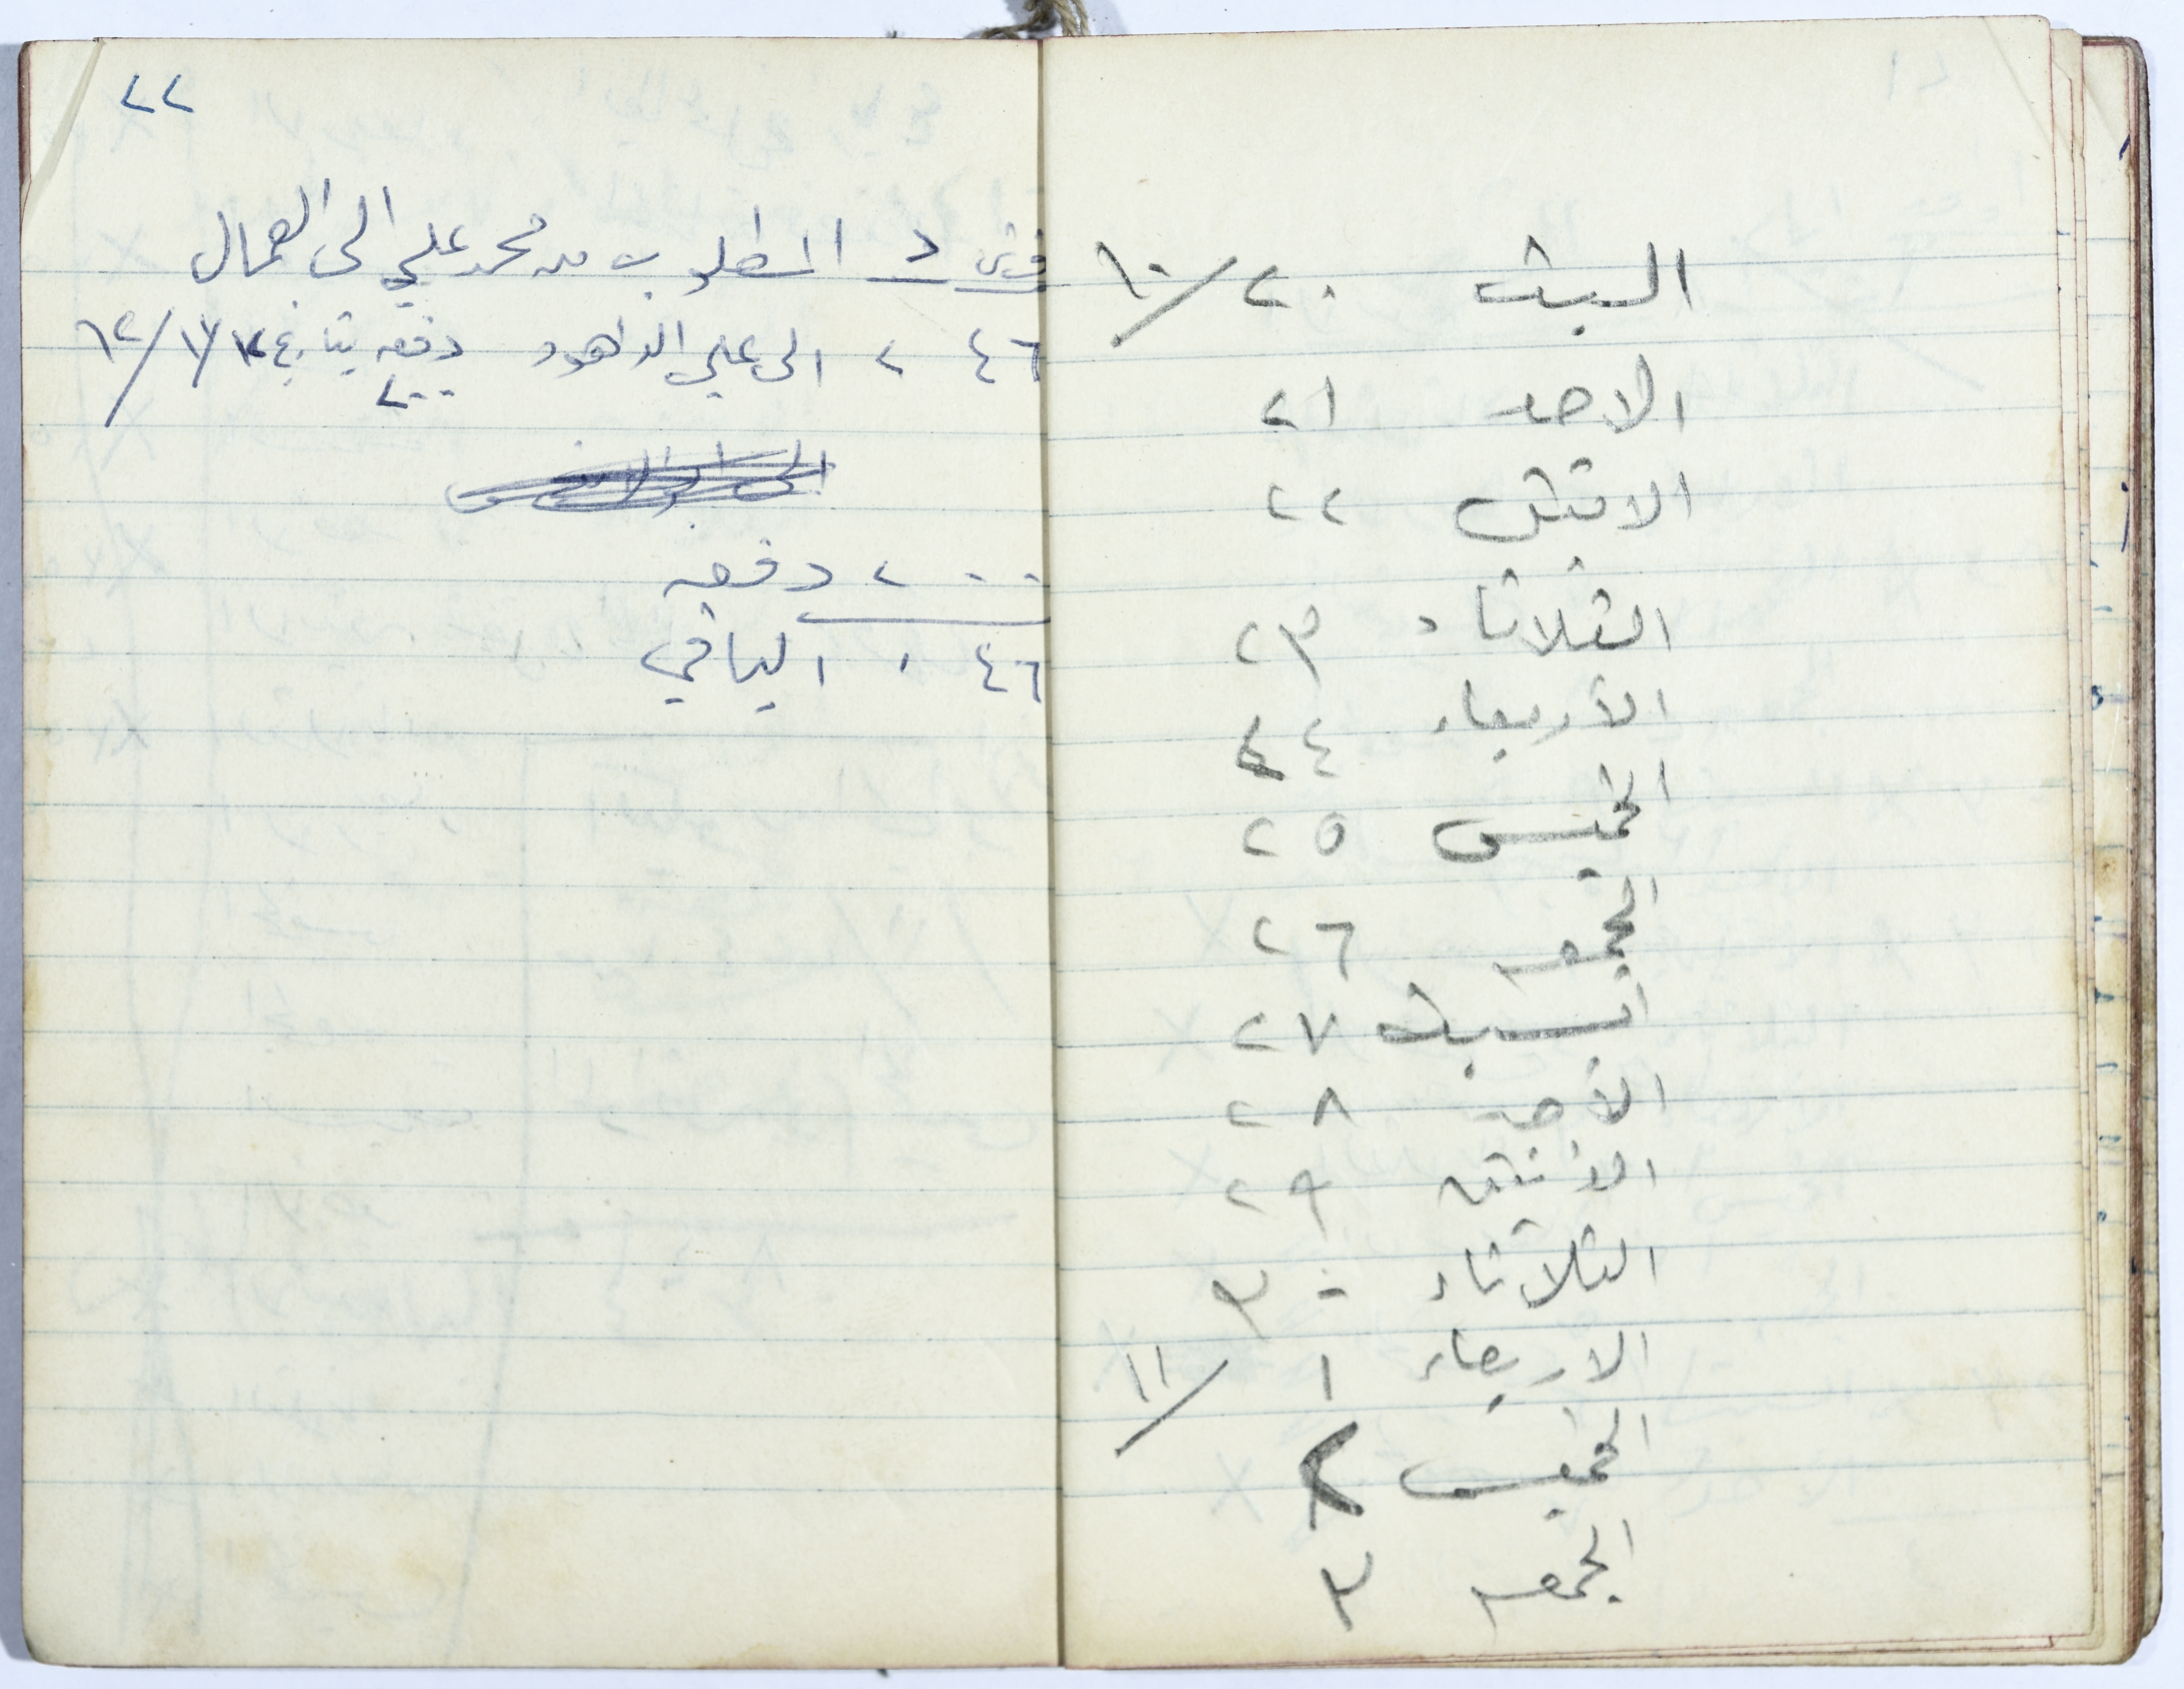 السبت ٢٠/١٠
الاحد ٢١
الاثنين ٢٢
الثلاثاء ٢٣
الأربعاء ٢٤
الخميس ٢٥
الجمعه ٢٦
السبت ٢٧
الأحد ٢٨
الاثنين ٢٩
الثلاثاء ٣٠
الاربعاء ١/١١
الخميس ٢
الجمعه ٣
٢٢
قرش د المطلوب من محمد علي الى العمال
٤٦ ٢ الى علي الداهود دفعه بتاريخ
٢٠٠
٢٠٠ دفعه
٤٦ ٠ الباقي